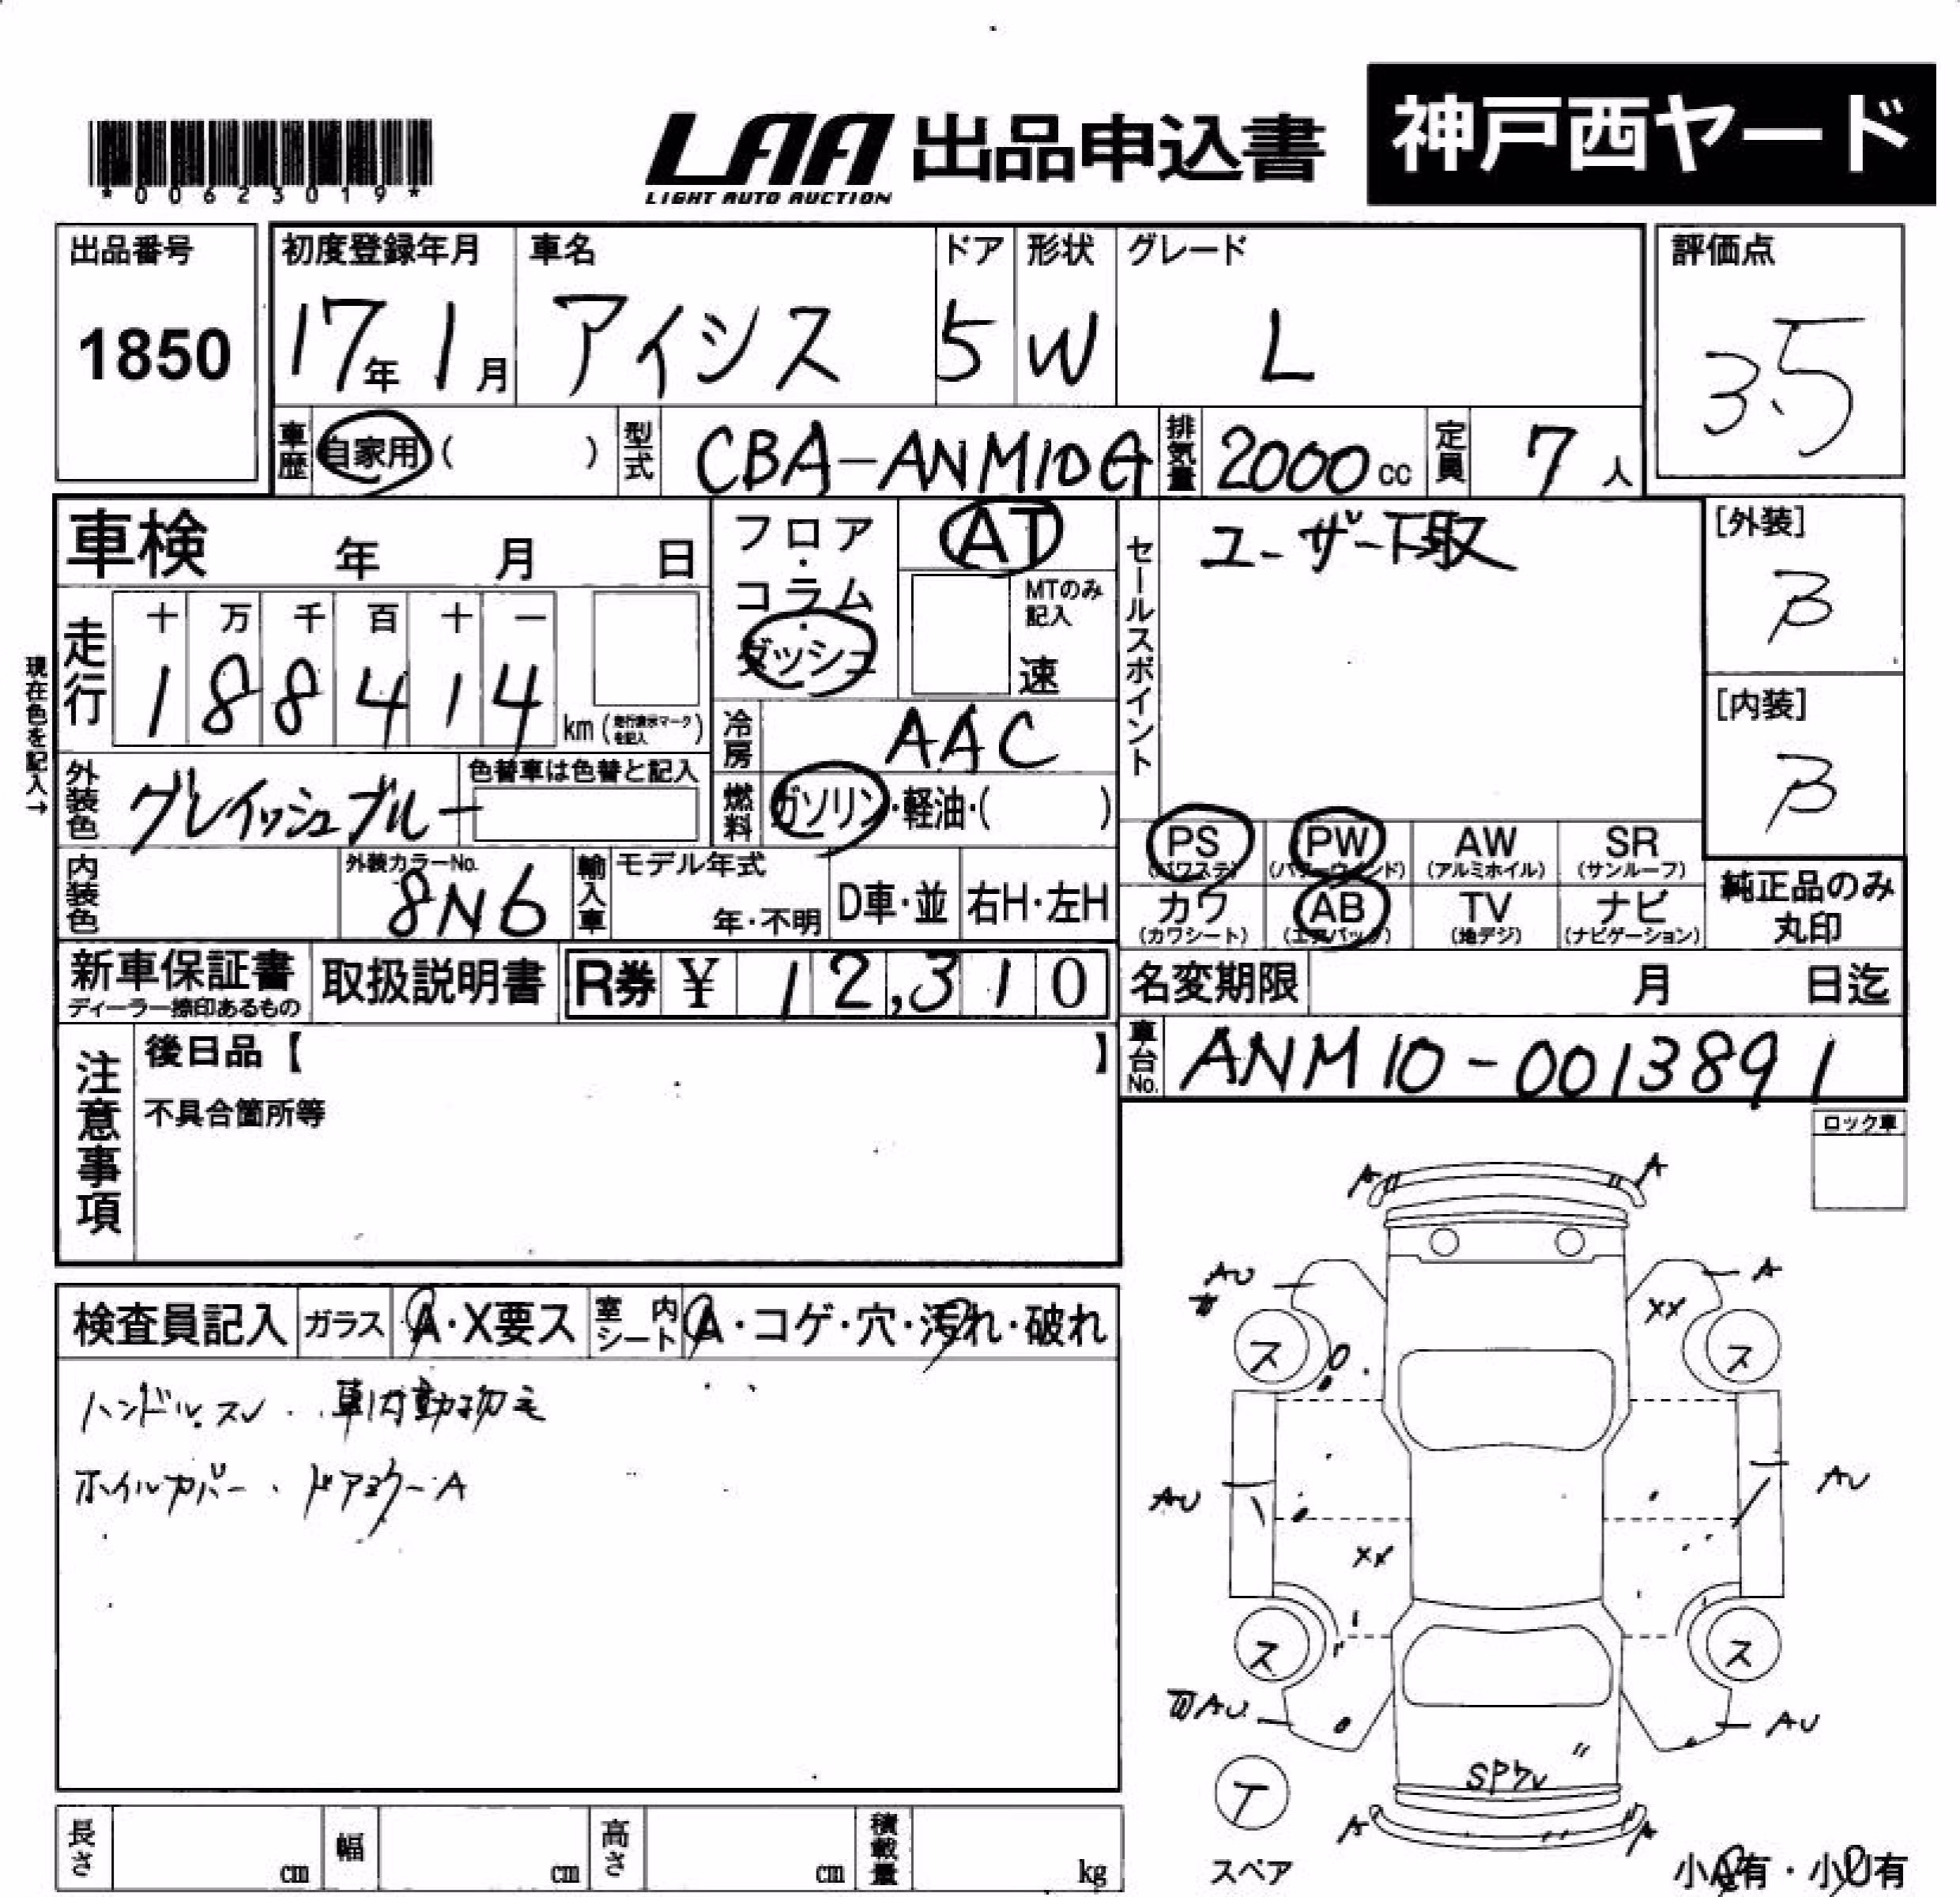 *00623019*
LAA 出品申込書 神戸西ヤード
LIGHT AUTO AUCTION
出品番号 1850
初度登録年月 17年1月
車名 アイシス
ドア 5
形状 W
グレード L
評価点 3.5
車歴 自家用 ( )
型式 CBA-ANM10G
排気量 2000cc
定員 7人
車検 年 月 日
フロア・コラム・ダッシュ
AT
MTのみ記入
速
セールスポイント ユーザー下取
[外装] B
[内装] B
現在色を記入→
走行 十 万 千 百 十 一
188414 km (走行表示マークを記入)
冷房 AAC
外装色 グレイッシュブルー
色替車は色替と記入
燃料 ガソリン・軽油・( )
PS (パワステ)
PW (パワーウインド)
AW (アルミホイル)
SR (サンルーフ)
カワ (カワシート)
AB (エアバック)
TV (地デジ)
ナビ (ナビゲーション)
純正品のみ丸印
内装色
外装カラーNo. 8N6
輸入車
モデル年式 年・不明
D車・並
右H・左H
新車保証書
ディーラー捺印あるもの
取扱説明書
R券 ¥ 12,310
名変期限 月 日迄
車台No. ANM10-0013891
注意事項
後日品【 】
不具合箇所等
ロック車
検査員記入 ガラス A・X要ス 室内シート A・コゲ・穴・汚れ・破れ
ハンドル.スレ 車内動物毛
ホイルカバー、ドアミラーA
A A
AU A
XX
ス ス
AU AU
XX
ス ス
AU AU
T
スペア
A A
小A有・小U有
長さ cm 幅 cm 高さ cm 積載量 kg